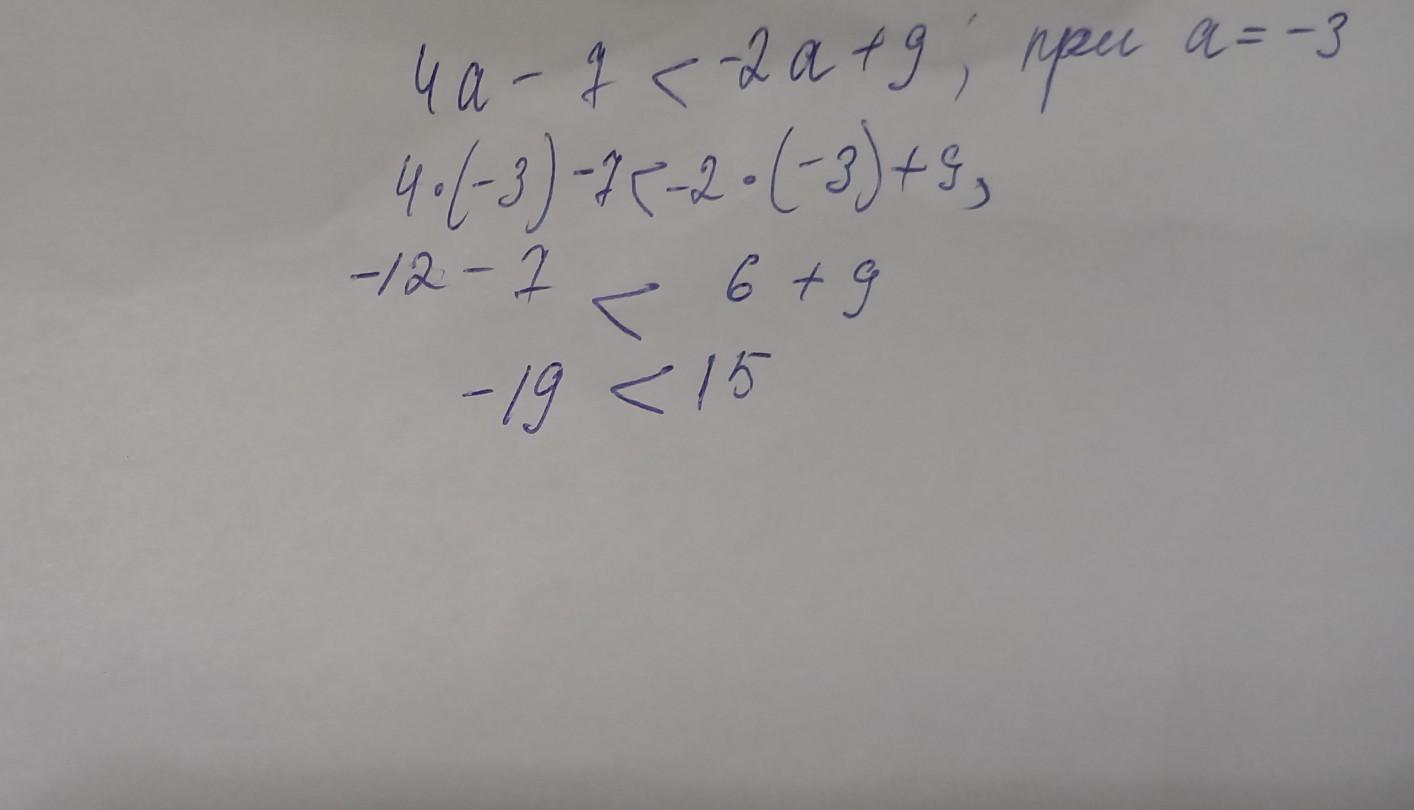 4a - 7 < -2a + 9; при a = -3
4·(-3) - 7 < -2·(-3) + 9,
-12 - 7 < 6 + 9
-19 < 15